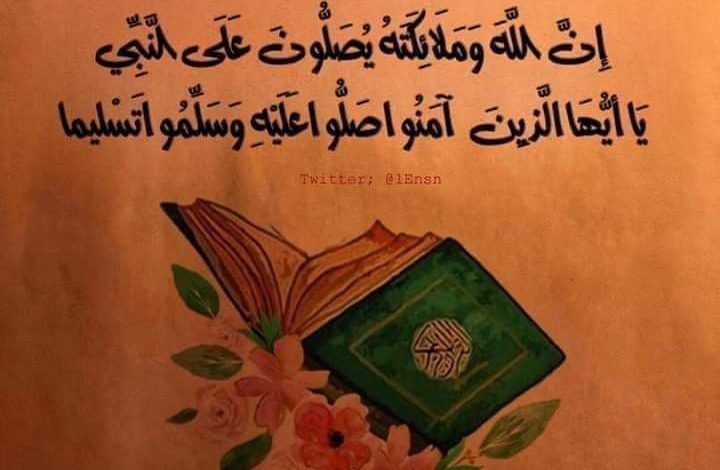 إِنَّ اللَّهَ وَمَلَائِكَتَهُ يُصَلُّونَ عَلَى النَّبِّي
يَا أَيُّهَا الَّذِينَ آمَنُوا صَلُّوا عَلَيْهِ وَسَلِّمُوا تَسْلِيما
Twitter; @1Ensn